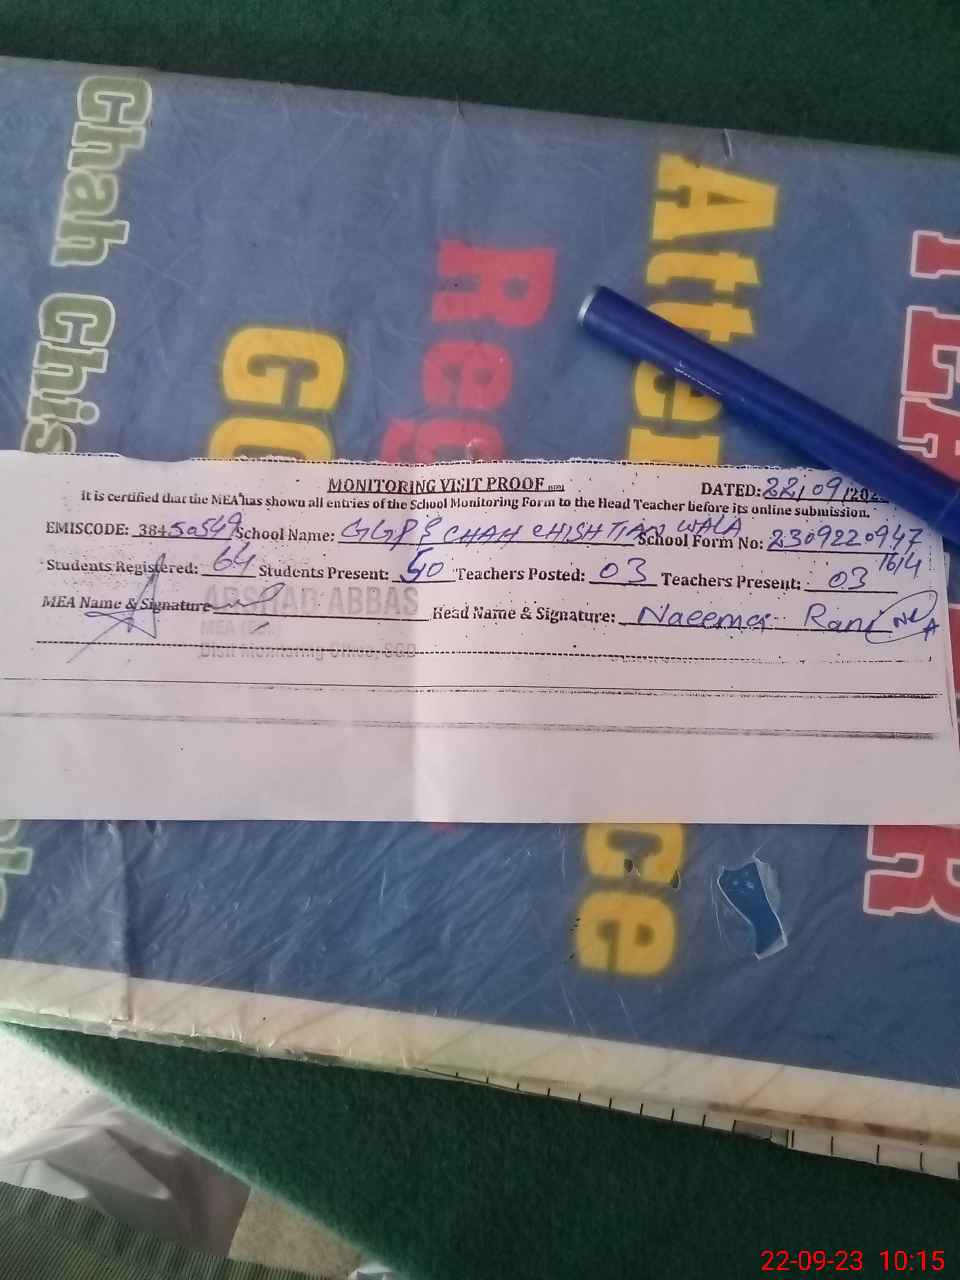 Chah Chis
GO
Reg
Atten
ce
TEA
ER
MONITORING VISIT PROOF
DATED: 22/09/202
It is certified that the MEA has shown all entries of the School Monitoring Form to the Head Teacher before its online submission.
EMISCODE: 38450549 School Name: GGPS CHAH CHISHTIAN WALA School Form No: 2309220947
1614
Students Registered: 64 Students Present: 50 Teachers Posted: 03 Teachers Present: 03
MEA Name & Signature ARSHAD ABBAS Head Name & Signature: Naeema Rani
MEA
Distt Monitoring Office, SGD
22-09-23 10:15